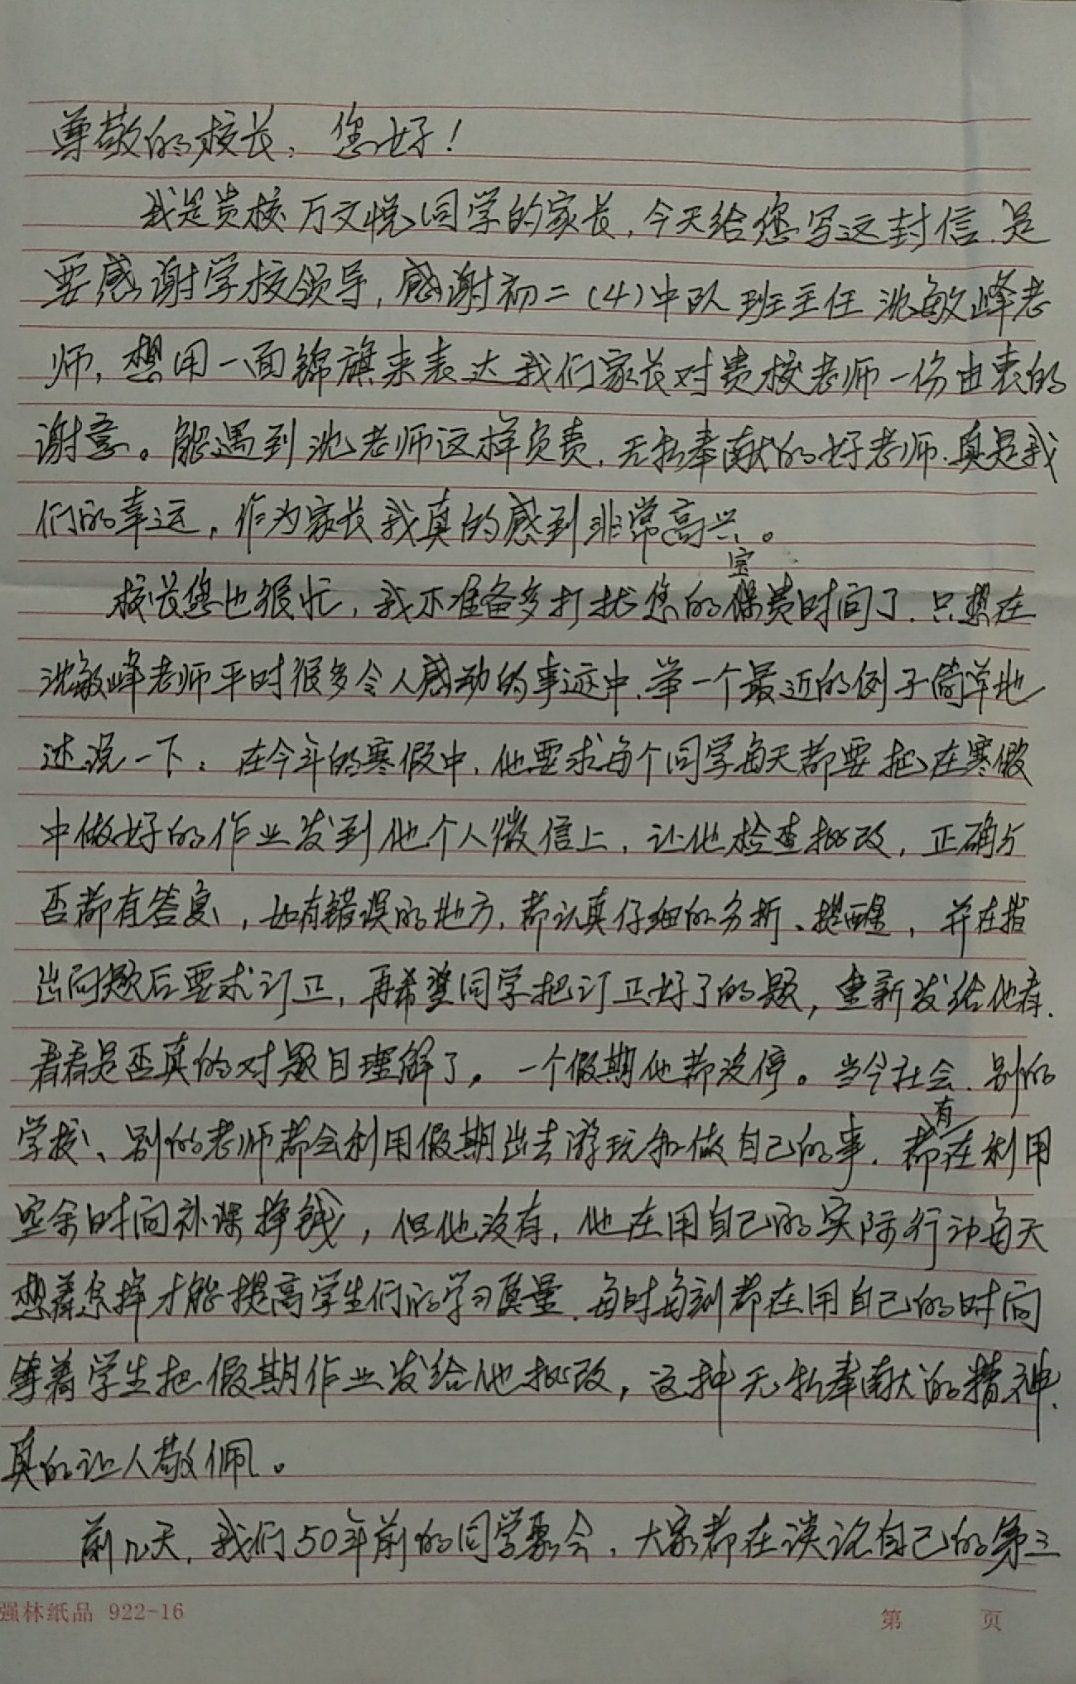 尊敬的校长：您好！
我是贵校万文悦同学的家长，今天给您写这封信，是
要感谢学校领导，感谢初二（4）中队班主任沈敏峰老
师，想用一面锦旗来表达我们家长对贵校老师一份由衷的
谢意。能遇到沈老师这样负责，无私奉献的好老师，真是我
们的幸运，作为家长我真的感到非常高兴。
宝
校长您也很忙，我不准备多打扰您的贵时间了，只想在
沈敏峰老师平时很多令人感动的事迹中，举一个最近的例子简单地
述说一下：在今年的寒假中，他要求每个同学每天都要把在寒假
中做好的作业发到他个人微信上，让他检查批改，正确与
否都有答复，如有错误的地方，都认真仔细的分析、提醒，并在指
出问题后要求订正，再希望同学把订正好了的题，重新发给他看，
看看是否真的对题目理解了。一个假期他都没停。当今社会，别的
有
学校、别的老师都会利用假期出去游玩和做自己的事，都在利用
空余时间补课挣钱，但他没有，他在用自己的实际行动每天
想着怎样才能提高学生们的学习质量，每时每刻都在用自己的时间
等着学生把假期作业发给他批改，这种无私奉献的精神，
真的让人敬佩。
前几天，我们50年前的同学聚会，大家都在谈论自己的第三
强林纸品 922-16
第 页